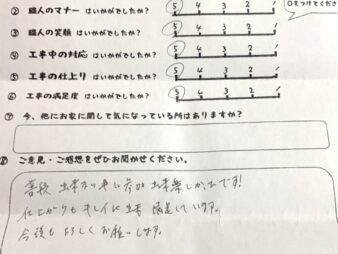 ② 職人のマナー はいかがでしたか? 5 4 3 2 1
○をつけてくださ
③ 職人の笑顔 はいかがでしたか? 5 4 3 2 1
④ 工事中の対応 はいかがでしたか? 5 4 3 2 1
⑤ 工事の仕上り はいかがでしたか? 5 4 3 2 1
⑥ 工事の満足度 はいかがでしたか? 5 4 3 2 1
⑦ 今、他にお家に関して気になっている所はありますか?
⑧ ご意見・ご感想をぜひお聞かせください。
普段 出来ない 事が 出来 楽しかったです!
仕上がりも キレイに 満足しています。
今後も よろしく お願いします。